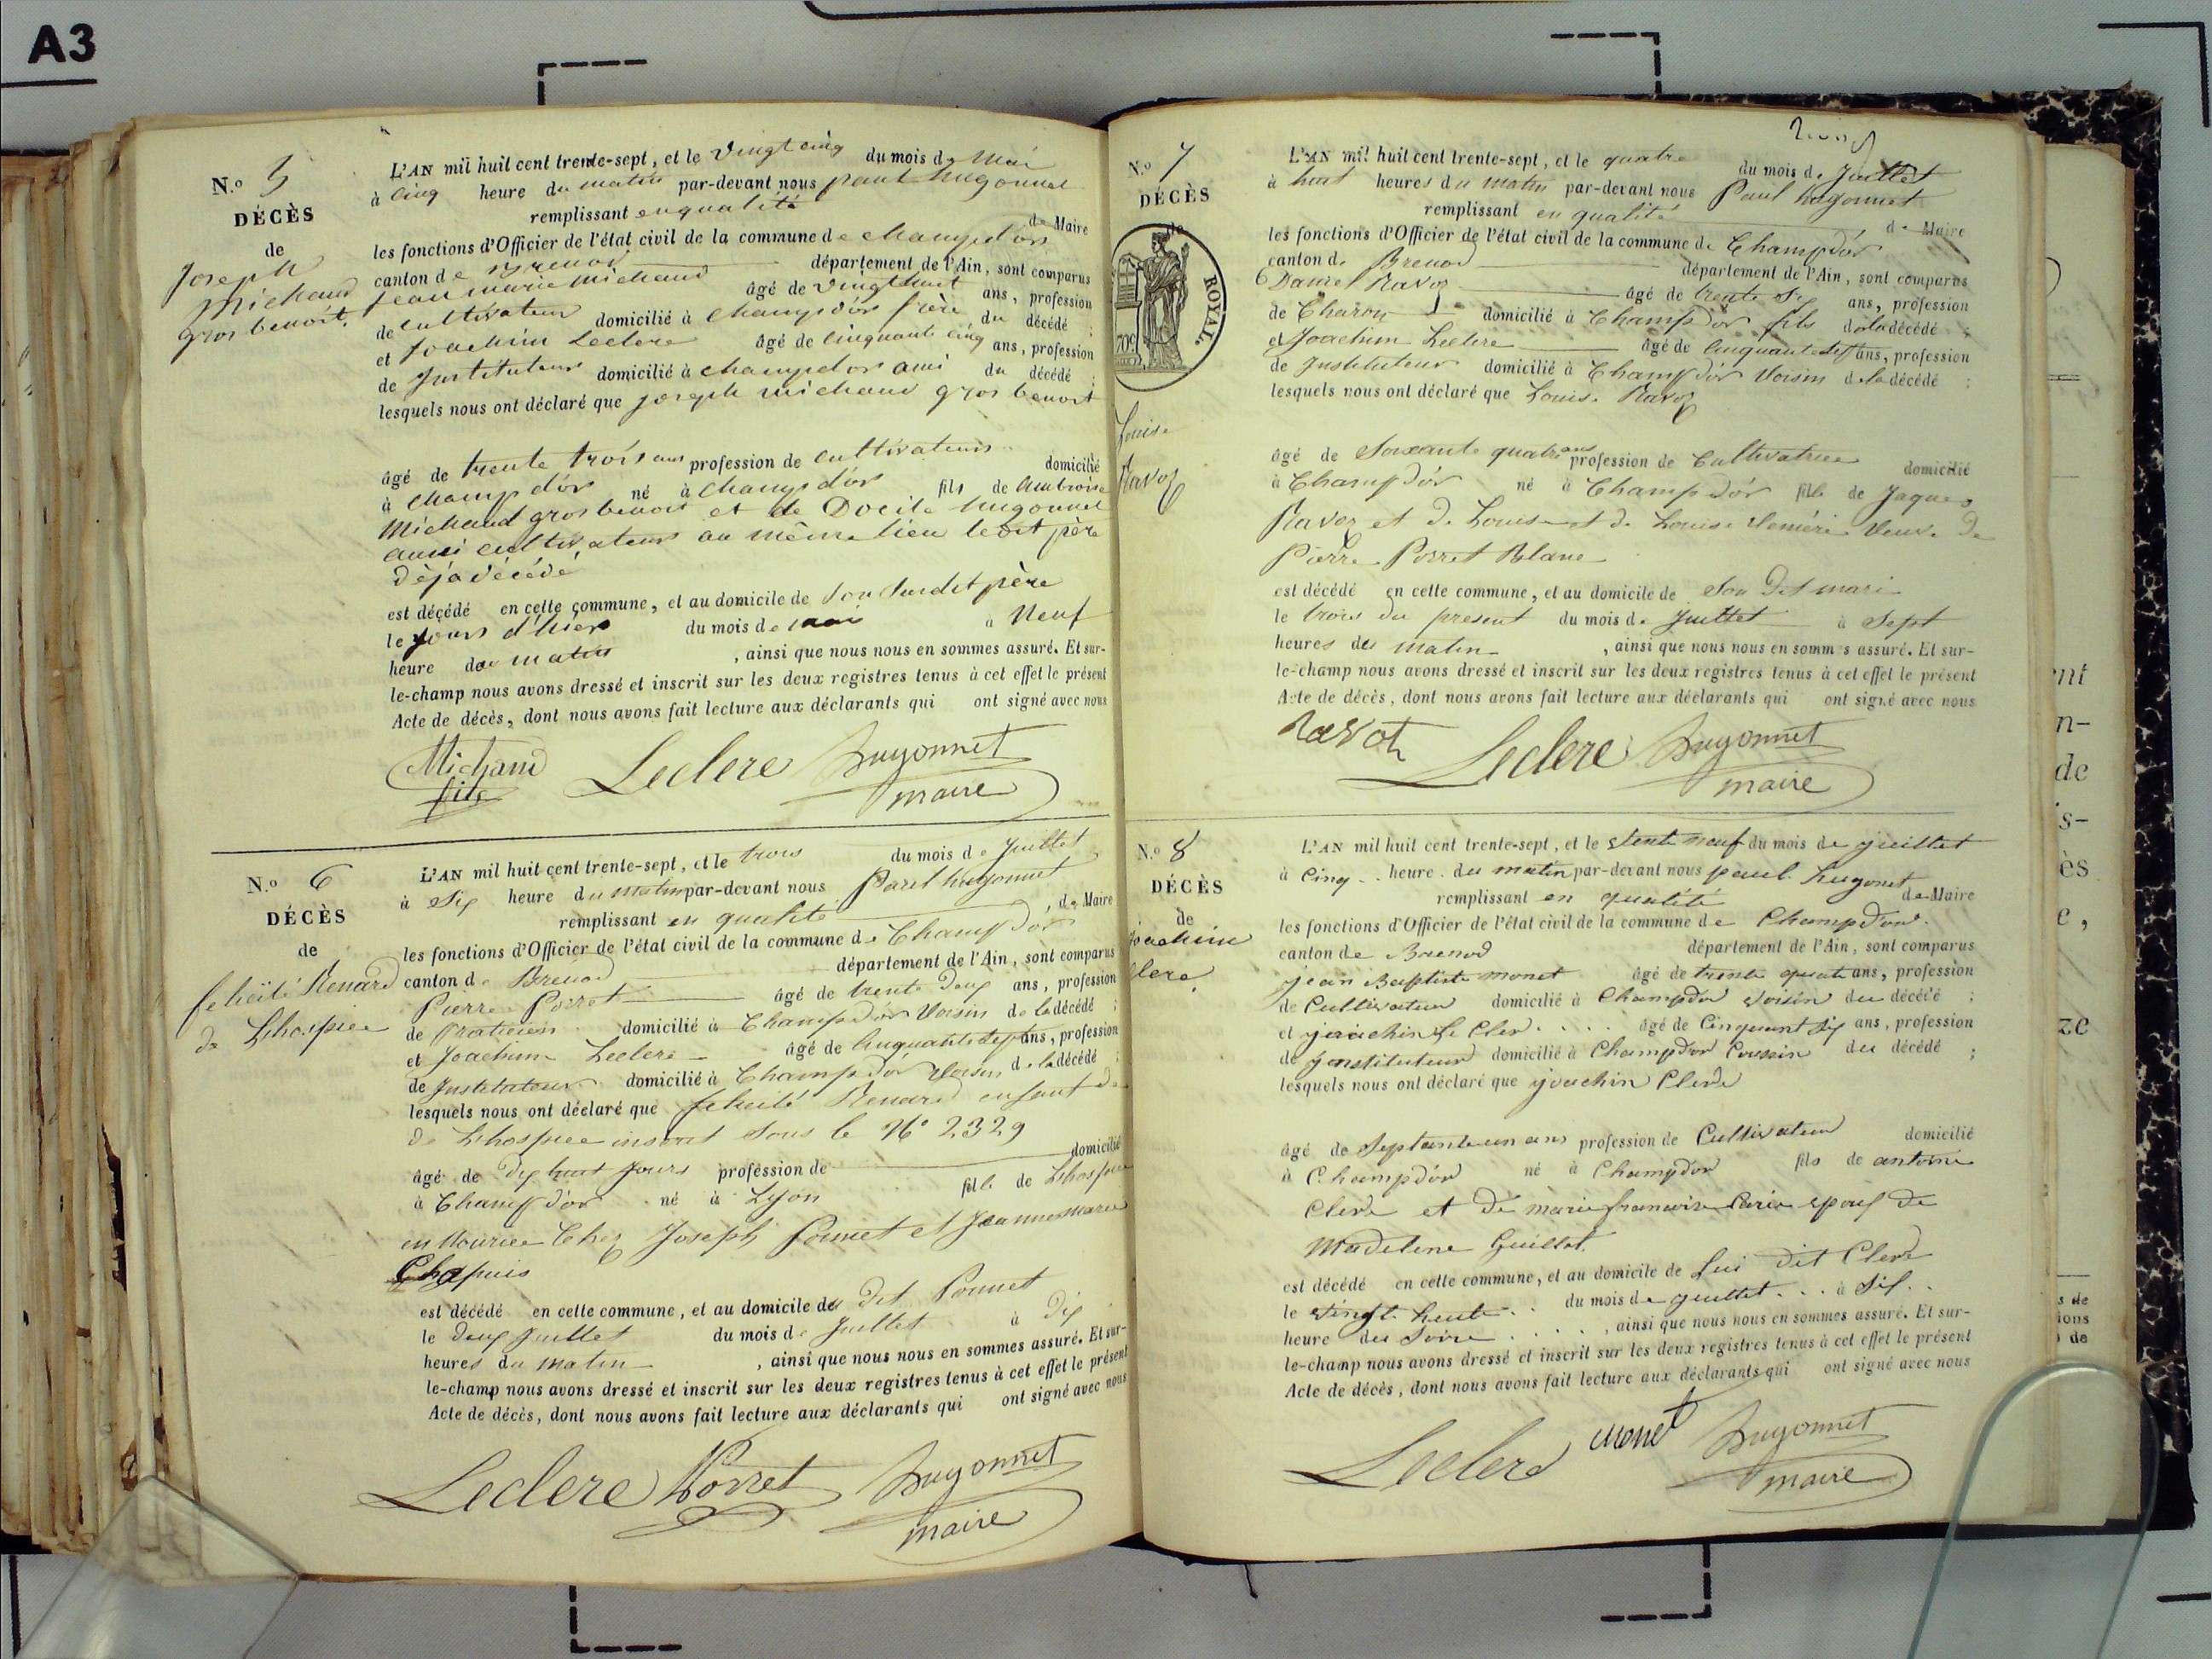 A3
N.o 5
DÉCÈS
de
Joseph
Michaud
gros benoit.
L'AN mil huit cent trente-sept, et le vingt cinq du mois de Mai
à cinq heure du matin par-devant nous paul hugonnet
remplissant en qualité de Maire
les fonctions d'Officier de l'état civil de la commune de champdor
canton de Brenod département de l'Ain, sont comparus
jean marie michaud âgé de vingt huit ans, profession
de cultivateur domicilié à champdor frère du décédé ;
et joachim Leclerc âgé de cinquante cinq ans, profession
de Instituteur domicilié à champdor ami du décédé ;
lesquels nous ont déclaré que joseph michaud gros benoit
âgé de trente trois ans profession de cultivateur domicilié
à champ d'or né à champ d'or fils de Ambroise
Michaud gros benoit et de Docile hugonnet
aussi cultivateur au même lieu ledit père
déjà décédé
est décédé en cette commune, et au domicile de son susdit père
le jours d'hiers du mois de mai à Neuf
heure du matin , ainsi que nous nous en sommes assuré. Et sur-
le-champ nous avons dressé et inscrit sur les deux registres tenus à cet effet le présent
Acte de décès, dont nous avons fait lecture aux déclarants qui ont signé avec nous
Michaud
fils
Leclerc
hugonnet
maire
N.o 6
DÉCÈS
de
felicité Renard
de Lhospice
L'AN mil huit cent trente-sept, et le trois du mois de Juillet
à Six heure du matin par-devant nous Paul hugonnet
remplissant en qualité , de Maire
les fonctions d'Officier de l'état civil de la commune de Champ d'or
canton de Brenod département de l'Ain, sont comparus
Pierre Porret âgé de trente Deux ans, profession
de Praticien domicilié à Champ d'or Voisin de la décédé ;
et Joachim Leclerc âgé de Cinquante Sept ans, profession
de Instituteur domicilié à Champ d'or Voisin de la décédé ;
lesquels nous ont déclaré que felicité Renard enfant de
de Lhospice inscrit sous le No 2329
âgé de Dix huit jours profession de domicilié
à Champ d'or né à Lyon fille de Lhospice
en Nourice Chez Joseph Ponnet et Jeanne marie
Chapuis
est décédé en cette commune, et au domicile de dit Ponnet
le deux juillet du mois de Juillet à Dix
heures du matin , ainsi que nous nous en sommes assuré. Et sur-
le-champ nous avons dressé et inscrit sur les deux registres tenus à cet effet le présent
Acte de décès, dont nous avons fait lecture aux déclarants qui ont signé avec nous
Leclerc Porret hugonnet
maire
N.o 7
DÉCÈS
de
ROYAL.
70c
Louise
Ravoz
L'AN mil huit cent trente-sept, et le quatre du mois de Juillet
à huit heures du matin par-devant nous Paul hugonnet
remplissant en qualité de Maire
les fonctions d'Officier de l'état civil de la commune de Champd'or
canton de Brenod département de l'Ain, sont comparus
Daniel Ravoz âgé de trente Six ans, profession
de Charon domicilié à Champ d'or fils de la décédé ;
et Joachim Leclerc âgé de Cinquante Sept ans, profession
de Instituteur domicilié à Champ d'or Voisin de la décédé ;
lesquels nous ont déclaré que Louise Ravoz
âgé de Soixante quatre ans profession de Cultivatrice domicilié
à Champ d'or né à Champ d'or fille de Jaques
Ravoz et de Louise et de Louise Veuve de
Pierre Porret Blanc
est décédé en cette commune, et au domicile de Son Dit mari
le trois du présent du mois de Juillet à Sept
heures du matin , ainsi que nous nous en sommes assuré. Et sur-
le-champ nous avons dressé et inscrit sur les deux registres tenus à cet effet le présent
Acte de décès, dont nous avons fait lecture aux déclarants qui ont signé avec nous
Leclerc hugonnet
maire
N.o 8
DÉCÈS
de
joachim
Clerc
L'AN mil huit cent trente-sept, et le neuf du mois de juillet
à Cinq heure du matin par-devant nous paul hugonet
remplissant en qualité de Maire
les fonctions d'Officier de l'état civil de la commune de Champdor
canton de Brenod département de l'Ain, sont comparus
jean Baptiste monet âgé de trente quatre ans, profession
de Cultivateur domicilié à Champdor Voisin du décédé ;
et joachin Le Clerc âgé de Cinquant Six ans, profession
de jnstituteur domicilié à Champdor Cousin du décédé ;
lesquels nous ont déclaré que joachin Clerc
âgé de Septante un ans profession de Cultivateur domicilié
à Champdor né à Champdor fils de antoine
Clerc et de marie francoise epoux de
Madeline Guillot.
est décédé en cette commune, et au domicile de Lui dit Clerc
le vingt heute du mois de juillet à Six
heure du Soire , ainsi que nous nous en sommes assuré. Et sur-
le-champ nous avons dressé et inscrit sur les deux registres tenus à cet effet le présent
Acte de décès, dont nous avons fait lecture aux déclarants qui ont signé avec nous
Leclerc monet hugonnet
maire